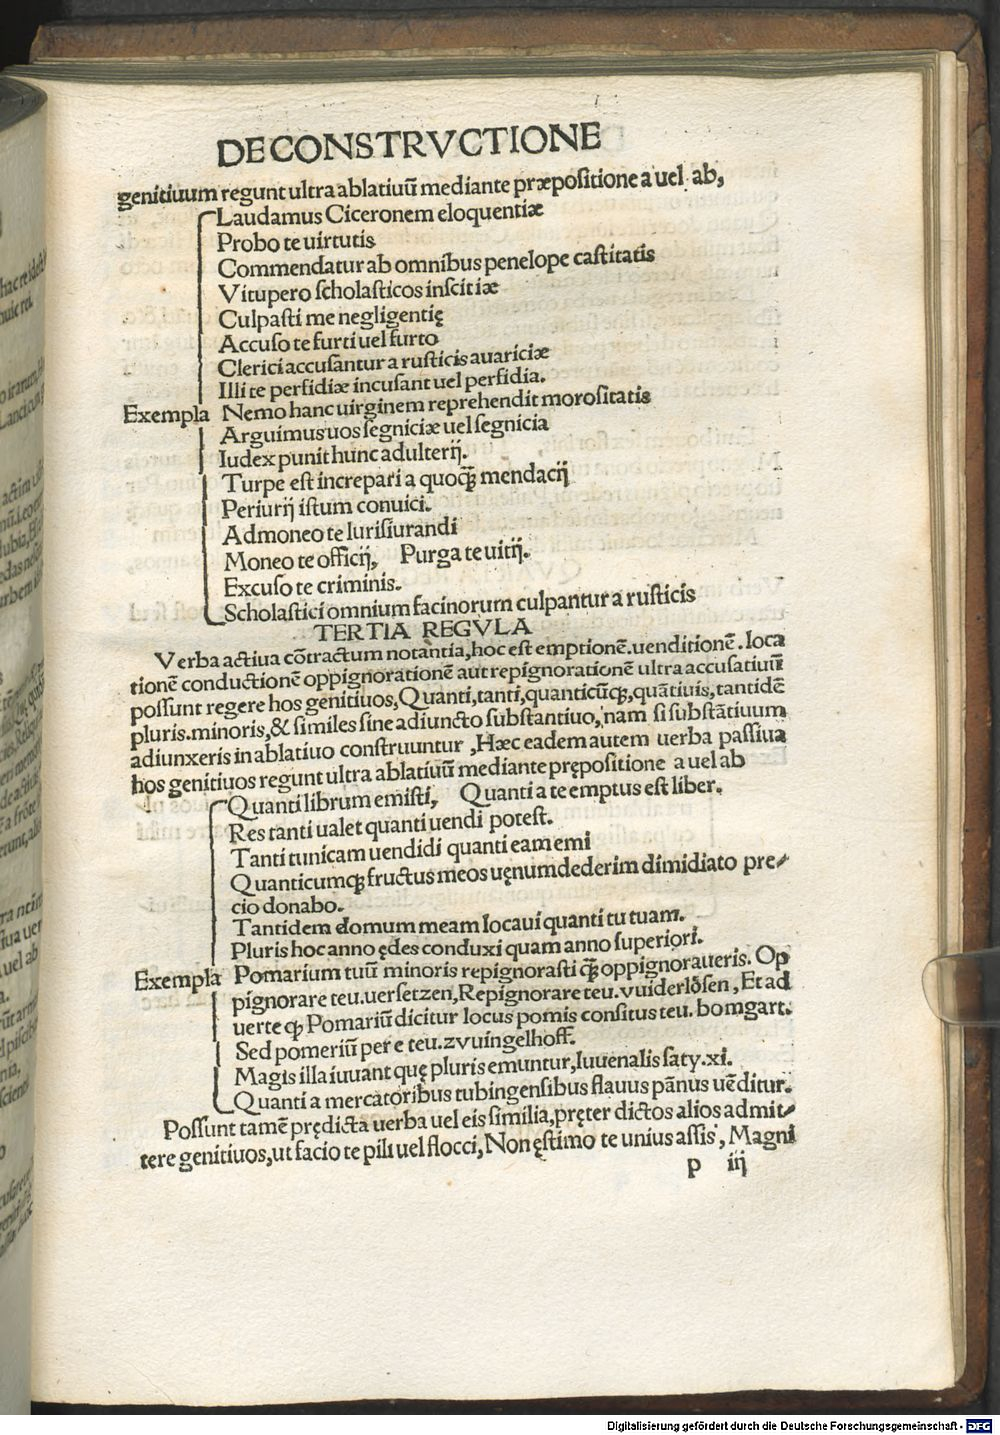 DE CONSTRVCTIONE
genitiuum regunt ultra ablatiuū mediante præpositione a uel ab,
Laudamus Ciceronem eloquentiæ
Probo te uirtutis
Commendatur ab omnibus penelope castitatis
Vitupero scholasticos inscitiæ
Culpasti me negligentię
Accuso te furti uel furto
Clerici accusantur a rusticis auariciæ
Illi te perfidiæ incusant uel perfidia.
Exempla Nemo hanc uirginem reprehendit morositatis
Arguimus uos segniciæ uel segnicia
Iudex punit hunc adulterij.
Turpe est increpari a quoꝗ̄ mendacij
Periurij istum conuici.
Admoneo te Iurisiurandi
Moneo te officij, Purga te uitij.
Excuso te criminis.
Scholastici omnium facinorum culpantur a rusticis
TERTIA REGVLA
Verba actiua cōtractum notantia, hoc est emptionē. uenditionē. loca
tionē conductionē oppignorationē aut repignorationē ultra accusatiuū
possunt regere hos genitiuos, Quanti, tanti, quanticūꝗ, quātiuis, tantidē
pluris. minoris, & similes sine adiuncto substantiuo, nam si substātiuum
adiunxeris in ablatiuo construuntur, Hæc eadem autem uerba passiua
hos genitiuos regunt ultra ablatiuū mediante prępositione a uel ab
Quanti librum emisti, Quanti a te emptus est liber.
Res tanti ualet quanti uendi potest.
Tanti tunicam uendidi quanti eam emi
Quanticumꝗ fructus meos uęnumdederim dimidiato pre⸗
cio donabo.
Tantidem domum meam locaui quanti tu tuam.
Pluris hoc anno ędes conduxi quam anno superiori.
Exempla Pomarium tuū minoris repignorasti ꝗ̄ oppignoraueris. Op
pignorare teu. uersetzen, Repignorare teu. vuiderlo̊sen, Et ad
uerte ꝙ Pomariū dicitur locus pomis consitus teu. bomgart.
Sed pomeriū per e teu. zvuingelhoff.
Magis illa iuuant quę pluris emuntur, Iuuenalis saty. xi.
Quanti a mercatoribus tubingensibus flauus pānus uēditur.
Possunt tamē prędicta uerba uel eis similia, pręter dictos alios admit⸗
tere genitiuos, ut facio te pili uel flocci, Non ęstimo te unius assis, Magni
p iij
Digitalisierung gefördert durch die Deutsche Forschungsgemeinschaft - DFG